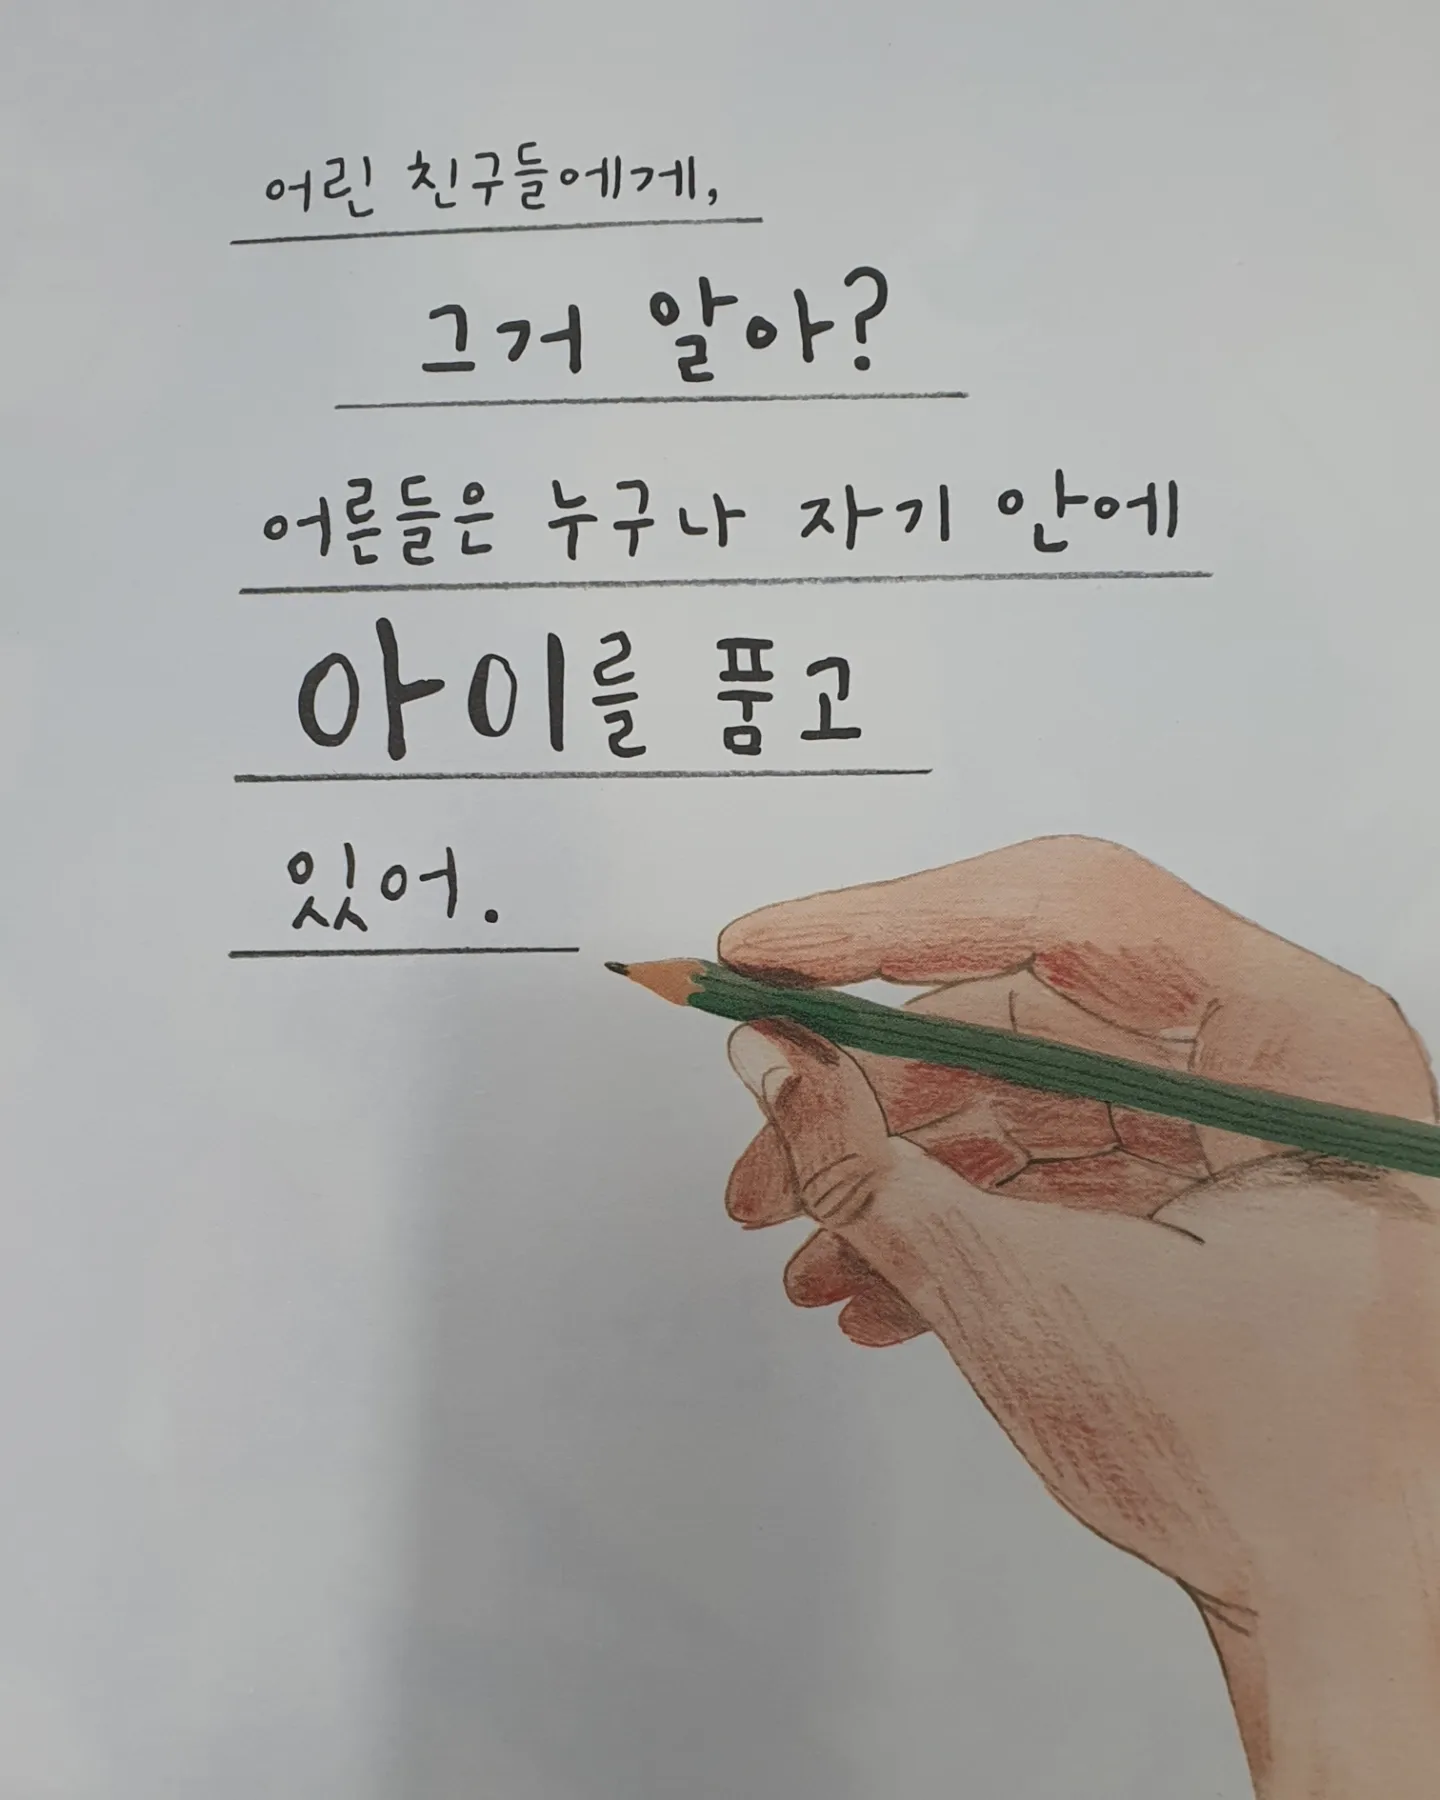 어린 친구들에게,
그거 알아?
어른들은 누구나 자기 안에
아이를 품고
있어.